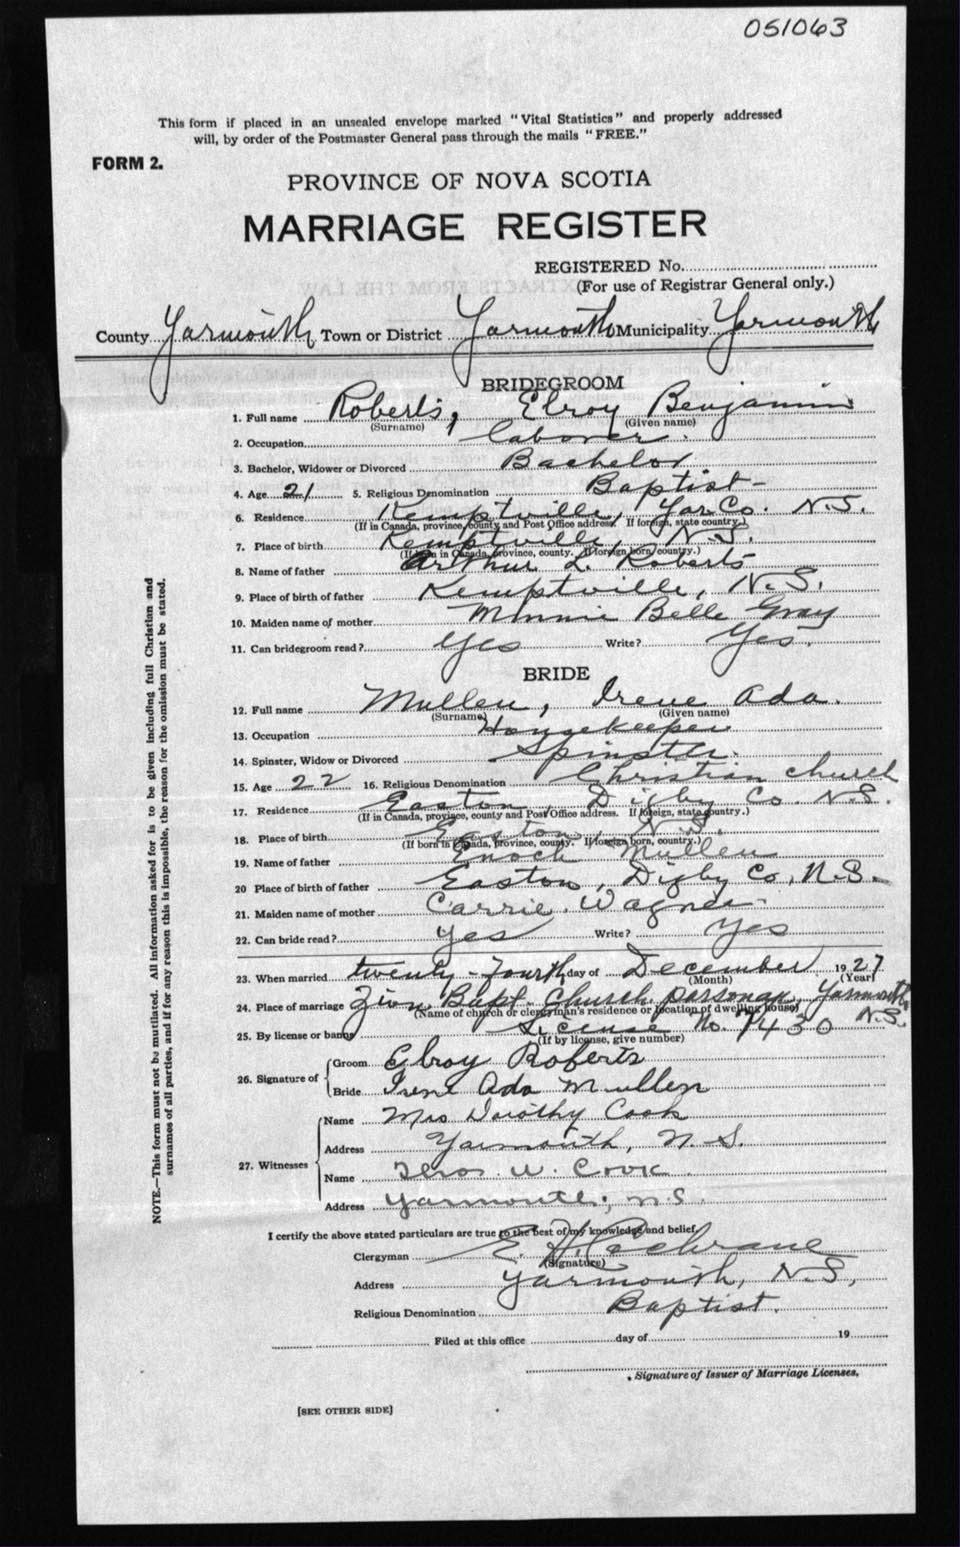 051063
This form if placed in an unsealed envelope marked "Vital Statistics" and properly addressed
will, by order of the Postmaster General pass through the mails "FREE."
FORM 2.
PROVINCE OF NOVA SCOTIA
MARRIAGE REGISTER
REGISTERED No.
(For use of Registrar General only.)
County Yarmouth Town or District Yarmouth Municipality Yarmouth
BRIDEGROOM
1. Full name Roberts, Elroy Benjamin
(Surname) (Given name)
2. Occupation laborer.
3. Bachelor, Widower or Divorced Bachelor
4. Age 21 5. Religious Denomination Baptist
6. Residence Kemptville, Yar Co. N.S.
(If in Canada, province, county and Post Office address. If foreign, state country.)
7. Place of birth Kemptville, N.S.
(If born in Canada, province, county. If foreign born, country.)
8. Name of father Arthur L. Roberts
9. Place of birth of father Kemptville, N.S.
10. Maiden name of mother Minnie Belle Gray
11. Can bridegroom read? Yes Write? Yes.
BRIDE
12. Full name Mullen, Irene Ada.
(Surname) (Given name)
13. Occupation Housekeeper
14. Spinster, Widow or Divorced Spinster.
15. Age 22 16. Religious Denomination Christian church
17. Residence Easton, Digby Co. N.S.
(If in Canada, province, county and Post Office address. If foreign, state country.)
18. Place of birth Easton, N.S.
(If born in Canada, province, county. If foreign born, country.)
19. Name of father Enoch Mullen
20 Place of birth of father Easton, Digby Co, N.S.
21. Maiden name of mother Carrie Wagner
22. Can bride read? yes Write? yes
23. When married twenty-fourth day of December 1927
(Month) (Year)
24. Place of marriage Zion Bapt. Church parsonage, Yarmouth N.S.
(Name of church or clergyman's residence or location of dwelling house)
25. By license or banns License No. 7430
(If by license, give number)
26. Signature of Groom Elroy Roberts
Bride Irene Ada Mullen
27. Witnesses Name Mrs Dorothy Cook
Address Yarmouth, N.S.
Name W. Cook
Address Yarmouth, N.S.
I certify the above stated particulars are true to the best of my knowledge and belief.
Clergyman E. H. Cochrane
(Signature)
Address Yarmouth, N.S.,
Religious Denomination Baptist.
Filed at this office day of 19
Signature of Issuer of Marriage Licenses.
[SEE OTHER SIDE]
NOTE.—This form must not be mutilated. All information asked for is to be given including full Christian and
surnames of all parties, and if for any reason this is impossible, the reason for the omission must be stated.